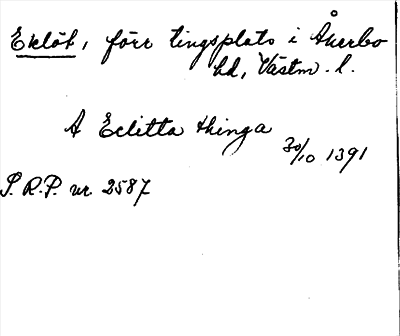 Eklöt, förr tingsplats i Åkerbo
hd, Västm. l.
A Eclitta thinga
30/10 1391
S.R.P. nr. 2587